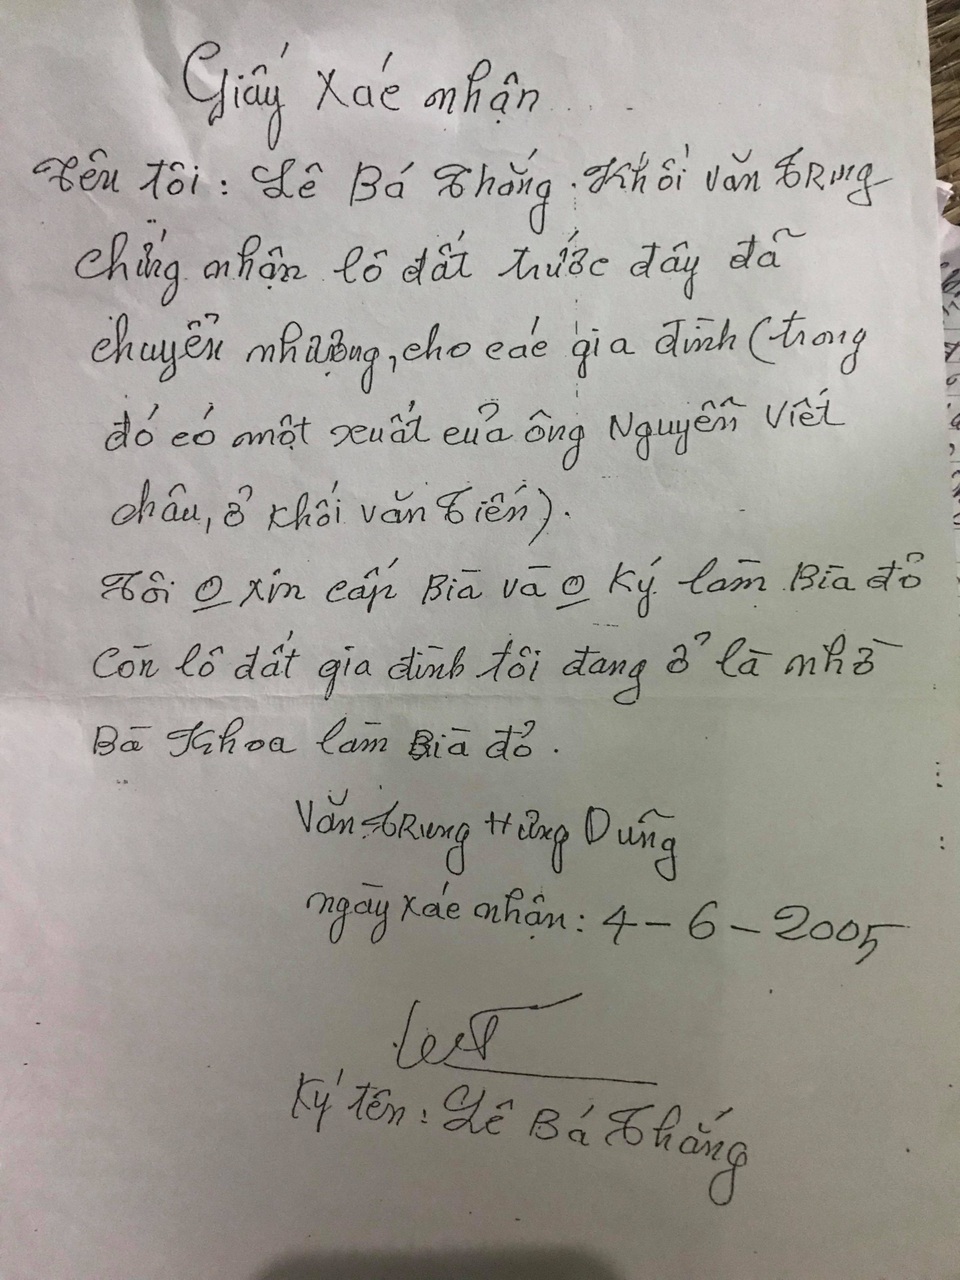 Giấy xác nhận
Tên tôi: Lê Bá Thắng. Khối văn TRung
chứng nhận lô đất trước đây đã
chuyển nhượng, cho các gia đình (trong
đó có một xuất của ông Nguyễn Viết
châu, ở khối văn Tiến).
Tôi O xin cấp Bìa và O Ký làm Bìa đỏ
Còn lô đất gia đình tôi đang ở là nhờ
Bà Khoa làm Bìa đỏ.
Văn TRung Hưng Dũng
ngày xác nhận: 4-6-2005
Ký tên: Lê Bá Thắng